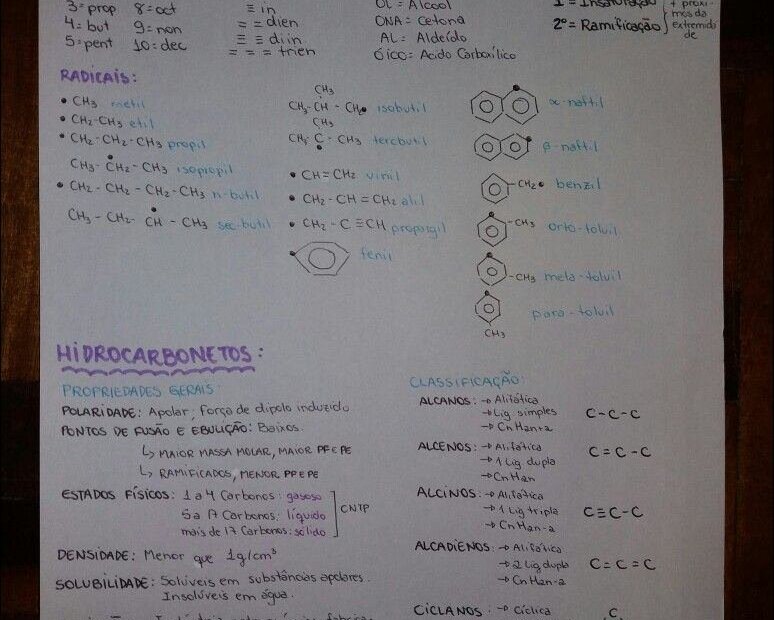 3= prop 8= oct ≡ in OL = Álcool 1º = Insaturação + próxi-
4= but 9= non = = dien ONA = Cetona 2º = Ramificação mos da
5= pent 10= dec ≡ ≡ diin AL = Aldeído extremida
= = = trien ÓICO = Ácido Carboxílico de
RADICAIS:
• CH3 metil
• CH2-CH3 etil
• CH2-CH2-CH3 propil
CH3-CH-CH3 isopropil
• CH2-CH2-CH2-CH3 n-butil
CH3-CH2-CH-CH3 sec-butil
CH3
CH3-CH-CH2• isobutil
CH3
CH3-C-CH3 tercbutil
• CH=CH2 vinil
• CH2-CH=CH2 alil
• CH2-C≡CH propargil
fenil
α-naftil
β-naftil
-CH2• benzil
-CH3 orto-toluil
-CH3 meta-toluil
para-toluil
CH3
HIDROCARBONETOS:
PROPRIEDADES GERAIS:
POLARIDADE: Apolar; força de dipolo induzido
PONTOS DE FUSÃO E EBULIÇÃO: Baixos.
↳ MAIOR MASSA MOLAR, MAIOR PF E PE
↳ RAMIFICADOS, MENOR PF E PE
ESTADOS FÍSICOS: 1 a 4 Carbonos: gasoso
5 a 17 Carbonos: líquido CNTP
mais de 17 Carbonos: sólido
DENSIDADE: Menor que 1g/cm³
SOLUBILIDADE: Solúveis em substâncias apolares.
Insolúveis em água.
CLASSIFICAÇÃO:
ALCANOS: → Alifática
→ Lig simples C-C-C
→ CnH2n+2
ALCENOS: → Alifática
→ 1 Lig dupla C=C-C
→ CnH2n
ALCINOS: → Alifática
→ 1 Lig triple C≡C-C
→ CnH2n-2
ALCADIENOS: → Alifática
→ 2 Lig dupla C=C=C
→ CnH2n-2
CICLANOS: → Cíclica C